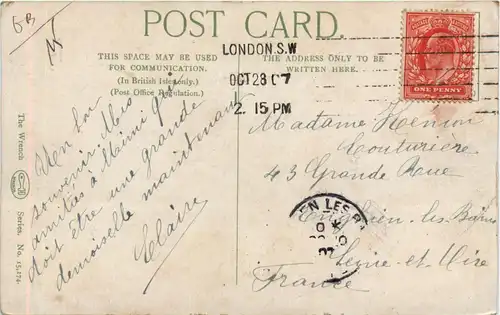 GB
POST CARD.
THIS SPACE MAY BE USED
FOR COMMUNICATION.
(In British Isles only.)
(Post Office Regulation.)
THE ADDRESS ONLY TO BE
WRITTEN HERE.
LONDON.S.W
OCT 28 07
2. 15 PM
ONE PENNY
The Wrench
Series. No. 15,174.
Un bon
souvenir Mes
amitiés à Mimi qui
doit être une grande
demoiselle maintenant
Claire
Madame Henion
Couturière
43 Grande Rue
Enghien-les-Bains
Seine-et-Oise
France
EN LES B